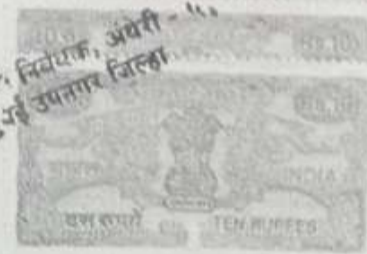 Rs.10
निबंधक, अंधेरी -
उपनगर जिल्हा
Rs.10
भारत INDIA
दस रुपये TEN RUPEES